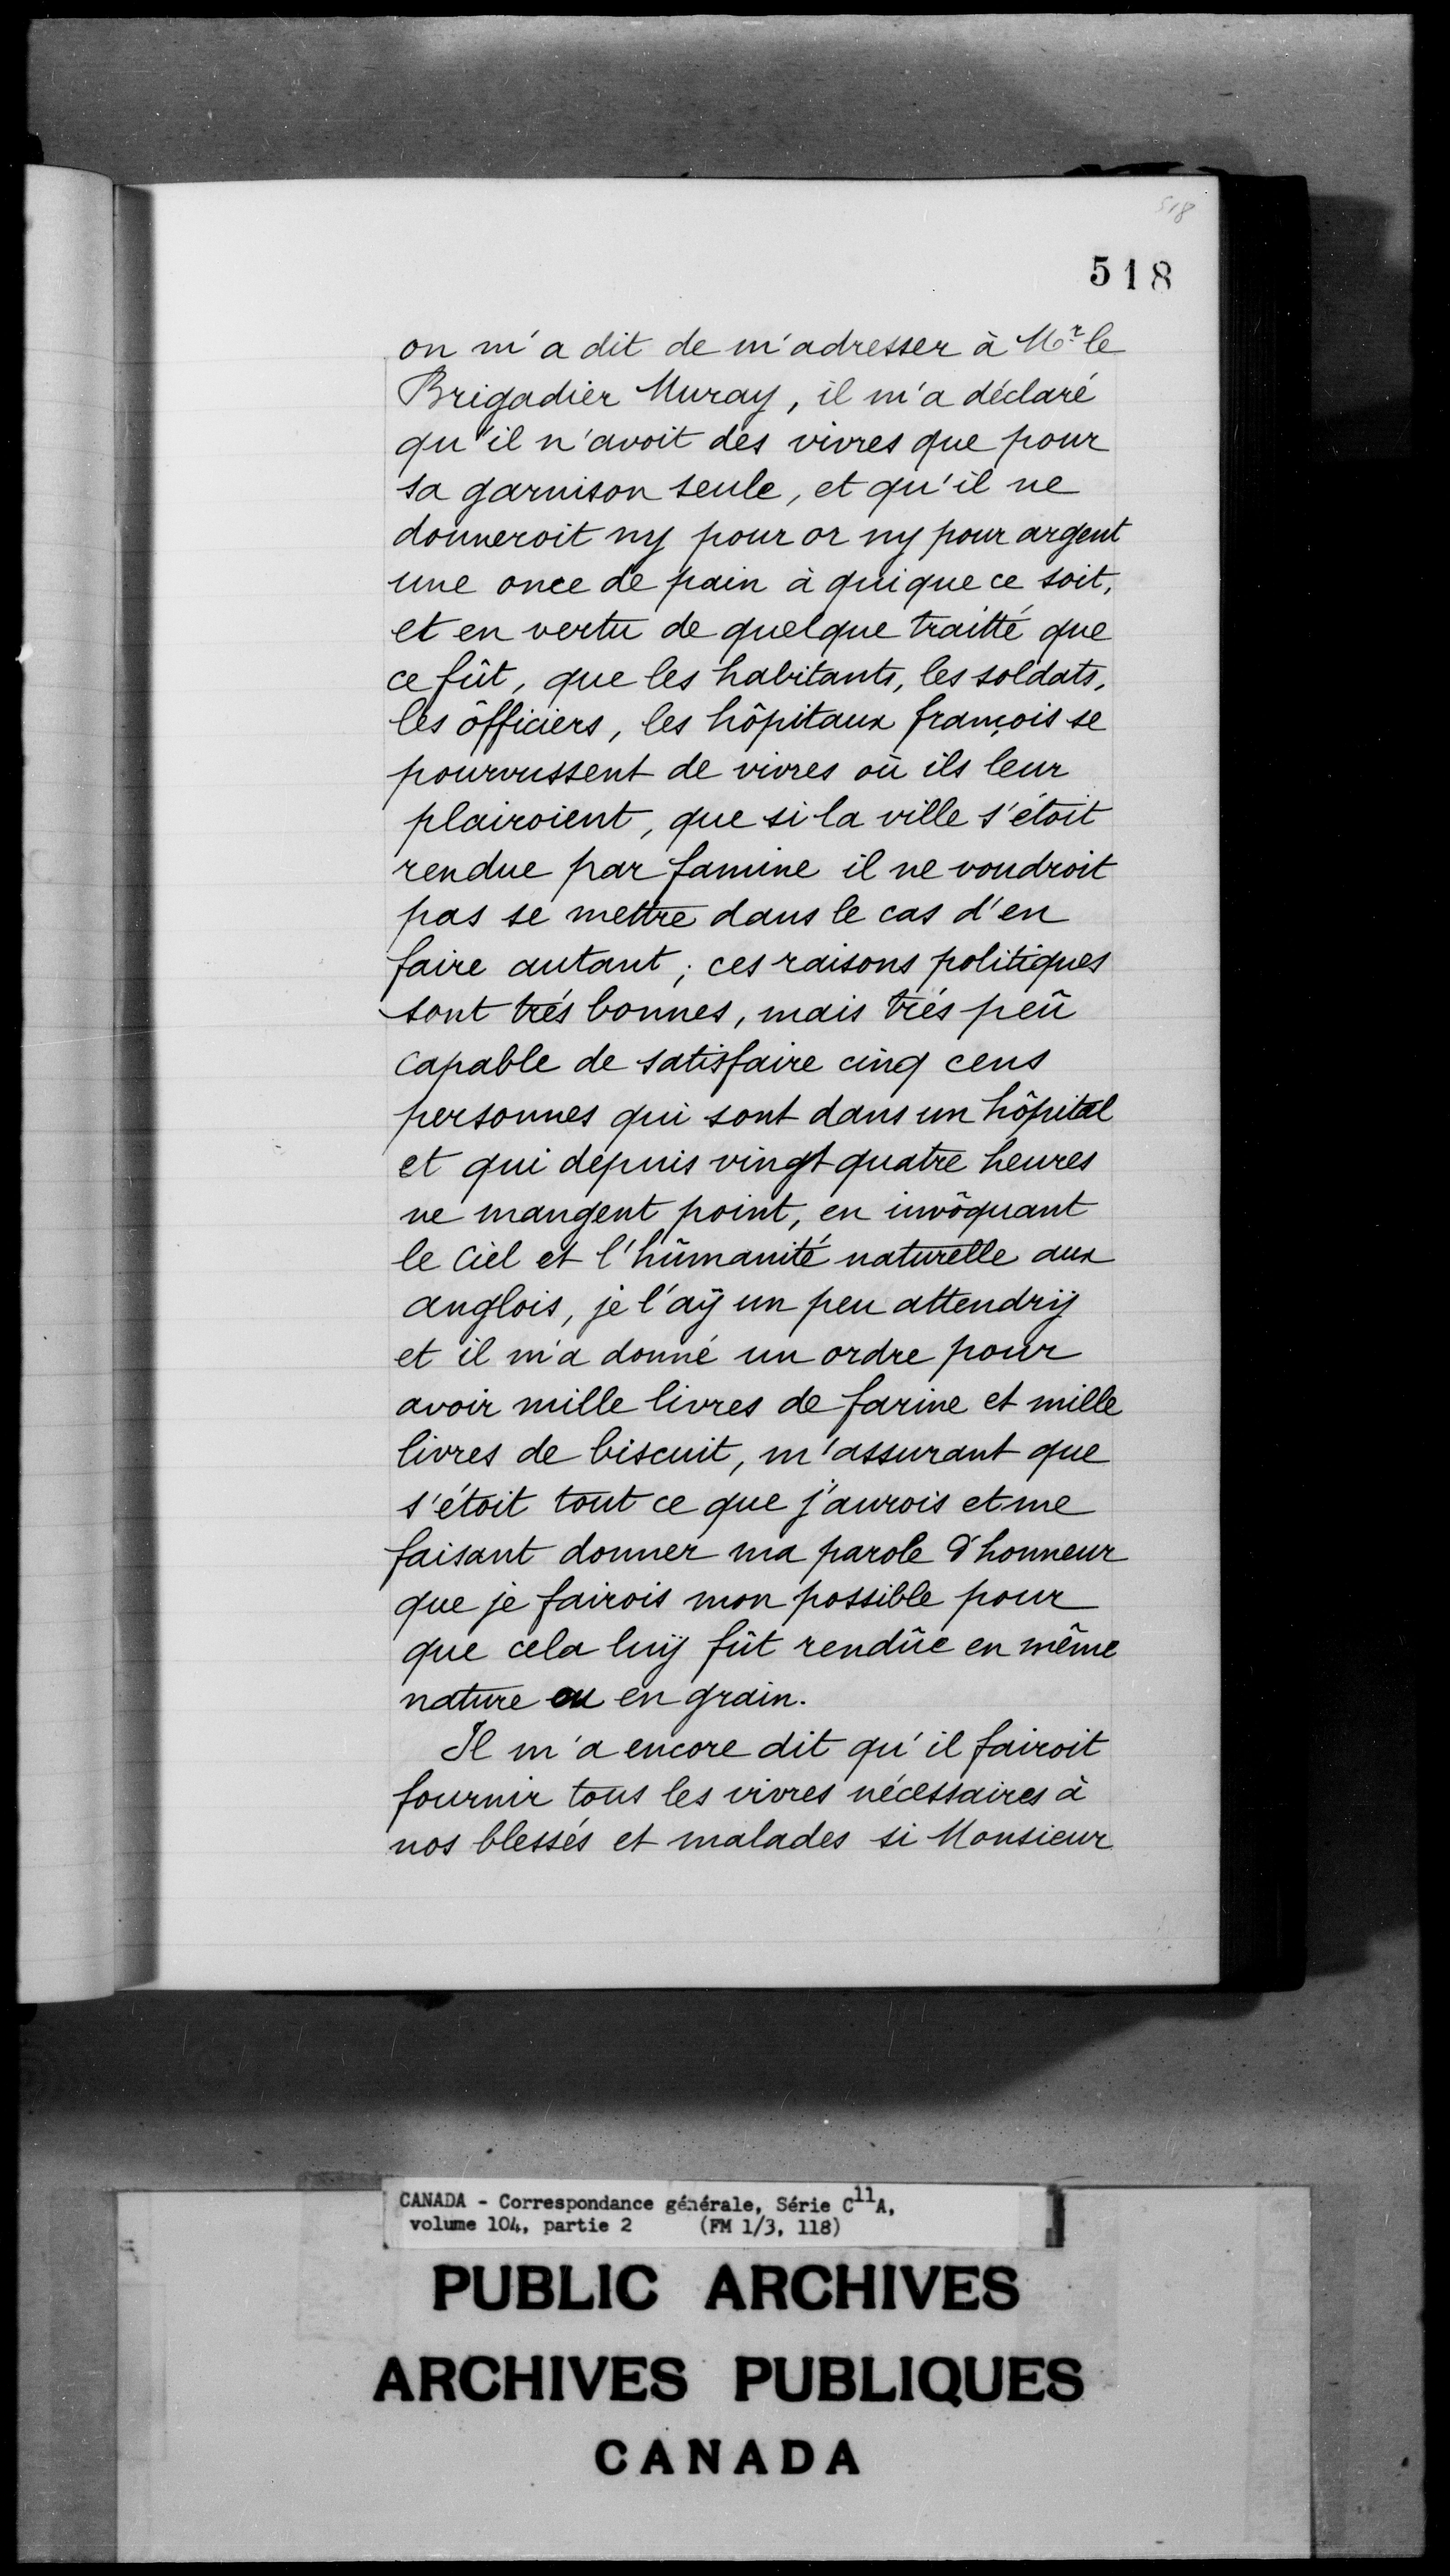 518
518
on m'a dit de m'adresser à Mr le
Brigadier Muray, il m'a déclaré
qu'il n'avoit des vivres que pour
sa garnison seule, et qu'il ne
donneroit ny pour or ny pour argent
une once de pain à qui que ce soit,
et en vertu de quelque traitté que
ce fût, que les habitants, les soldats,
les ôfficiers, les hôpitaux françois se
pourvussent de vivres où ils leur
plairoient, que si la ville s'étoit
rendue par famine il ne voudroit
pas se mettre dans le cas d'en
faire autant; ces raisons politiques
sont trés bonnes, mais trés peû
capable de satisfaire cinq cens
personnes qui sont dans un hôpital
et qui depuis vingt quatre heures
ne mangent point, en invôquant
le Ciel et l'hûmanité naturelle aux
anglois, je l'aÿ un peu attendrÿ
et il m'a donné un ordre pour
avoir mille livres de farine et mille
livres de biscuit, m'assurant que
s'étoit tout ce que j'aurois et me
faisant donner ma parole d'honneur
que je fairois mon possible pour
que cela luÿ fût rendûe en même
nature ou en grain.
Il m'a encore dit qu'il fairoit
fournir tous les vivres nécessaires à
nos blessés et malades si Monsieur
CANADA - Correspondance générale, Série C11A,
volume 104, partie 2 (FM 1/3, 118)
PUBLIC ARCHIVES
ARCHIVES PUBLIQUES
CANADA